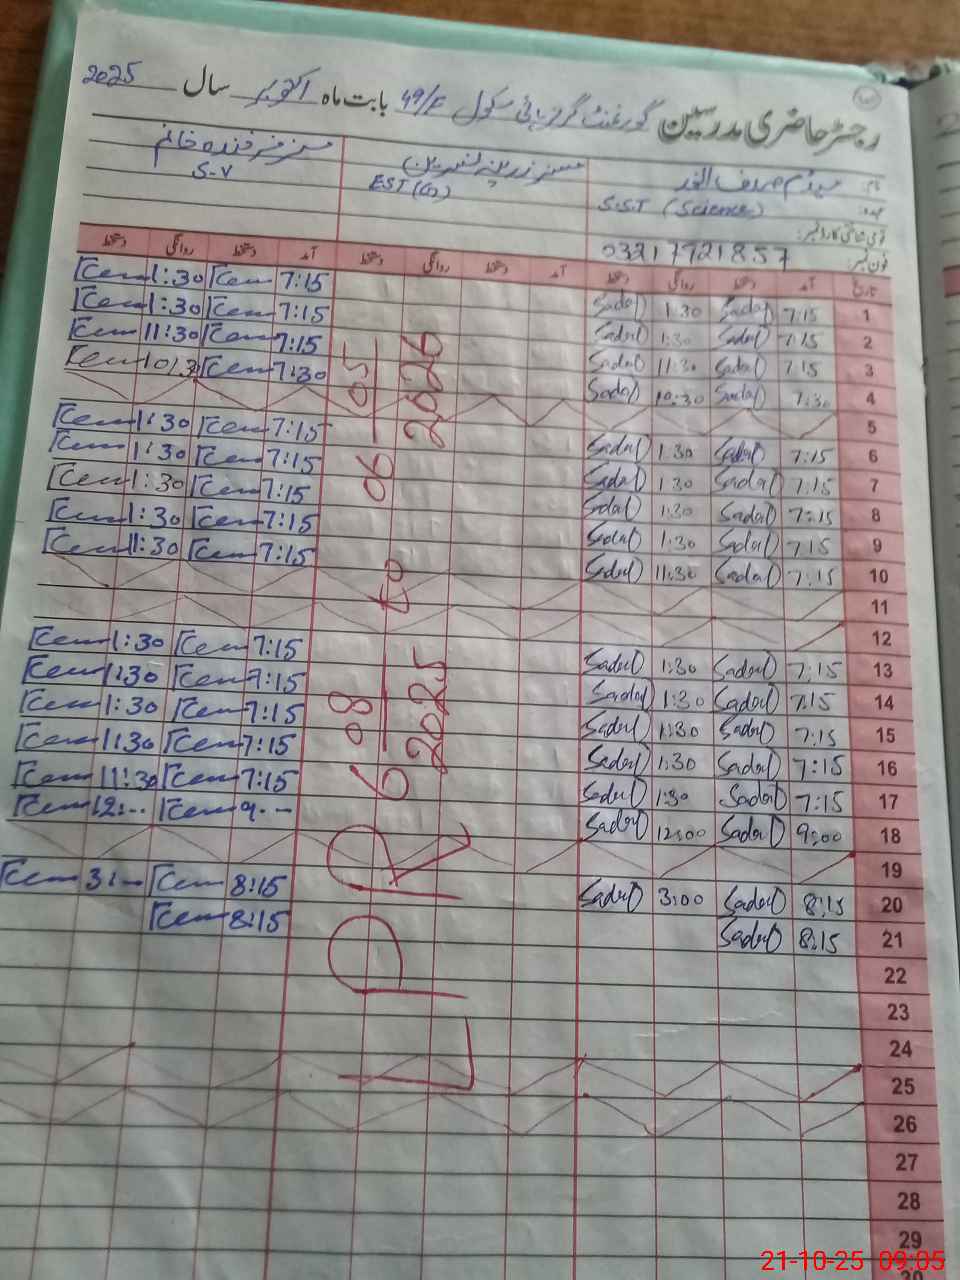 رجسٹر حاضری مدرسین گورنمنٹ گرلز ہائی سکول 49/F بابت ماہ اکتوبر سال 2025
نام:
عہدہ: S.S.T (Science) EST (G) S-V
قومی شناختی کارڈ نمبر:
فون نمبر: 03217921857
تاریخ آمد دستخط روانگی دستخط آمد دستخط روانگی دستخط آمد دستخط روانگی دستخط
1 7:15 Sadaf 1:30 Sadaf 7:15 1:30
2 7:15 Sadaf 1:30 Sadaf 7:15 1:30
3 7:15 Sadaf 11:30 Sadaf 7:15 11:30
4 7:30 Sadaf 10:30 Sadaf 7:30
5
6 7:15 Sadaf 1:30 Sadaf 7:15 1:30
7 7:15 Sadaf 1:30 Sadaf 7:15 1:30
8 7:15 Sadaf 1:30 Sadaf 7:15 1:30
9 7:15 Sadaf 1:30 Sadaf 7:15 1:30
10 7:15 Sadaf 11:30 Sadaf 7:15 11:30
11
12
13 7:15 Sadaf 1:30 Sadaf 7:15 1:30
14 7:15 Sadaf 1:30 Sadaf 7:15 1:30
15 7:15 Sadaf 1:30 Sadaf 7:15 1:30
16 7:15 Sadaf 1:30 Sadaf 7:15 1:30
17 7:15 Sadaf 1:30 Sadaf 7:15 11:30
18 9:00 Sadaf 12:00 Sadaf 9.-- 12:--
19
20 8:15 Sadaf 3:00 Sadaf 8:15 3:--
21 8:15 Sadaf 8:15
22
23
24
25
26
27
28
29
LPR 6 08 2025 to 06 05 2026
21-10-25 09:05